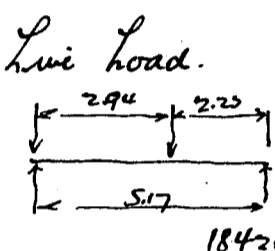 Live Load.
2.94 2.23
5.17